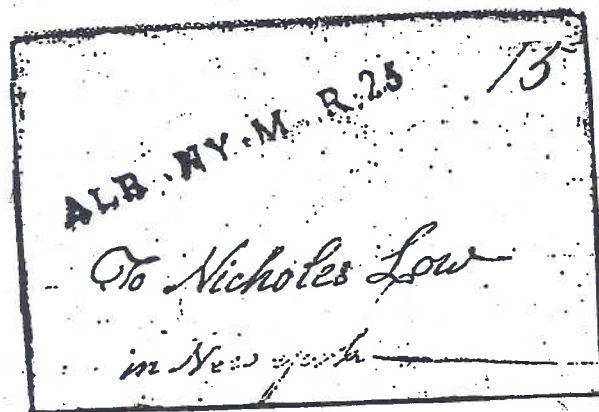 15
ALB. NY. M R. 25
To Nicholes Low
in New york